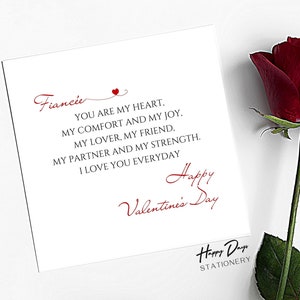 Fiancée
YOU ARE MY HEART,
MY COMFORT AND MY JOY.
MY LOVER, MY FRIEND,
MY PARTNER AND MY STRENGTH.
I LOVE YOU EVERYDAY
Happy
Valentine's Day
Happy Days
STATIONERY